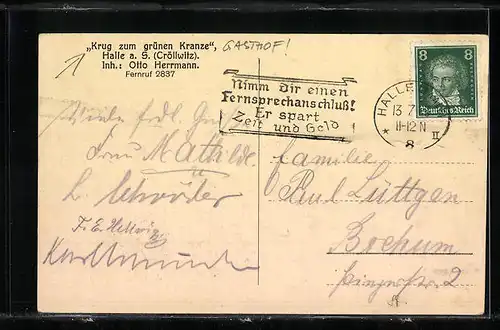 „Krug zum grünen Kranze",
Halle a. S. (Cröllwitz).
Inh.: Otto Herrmann.
Fernruf 2837
GASTHOF!
Nimm Dir einen
Fernsprechanschluß!
Er spart
Zeit und Geld
HALLE
13 7
11-12 N
* II
8
8 8
Deutsches Reich
Viele frdl. Gr
Frau Mathilde
L. Schröder
F. E. Hellwig
Karl
Familie
Paul Lüttgen
Bochum
2